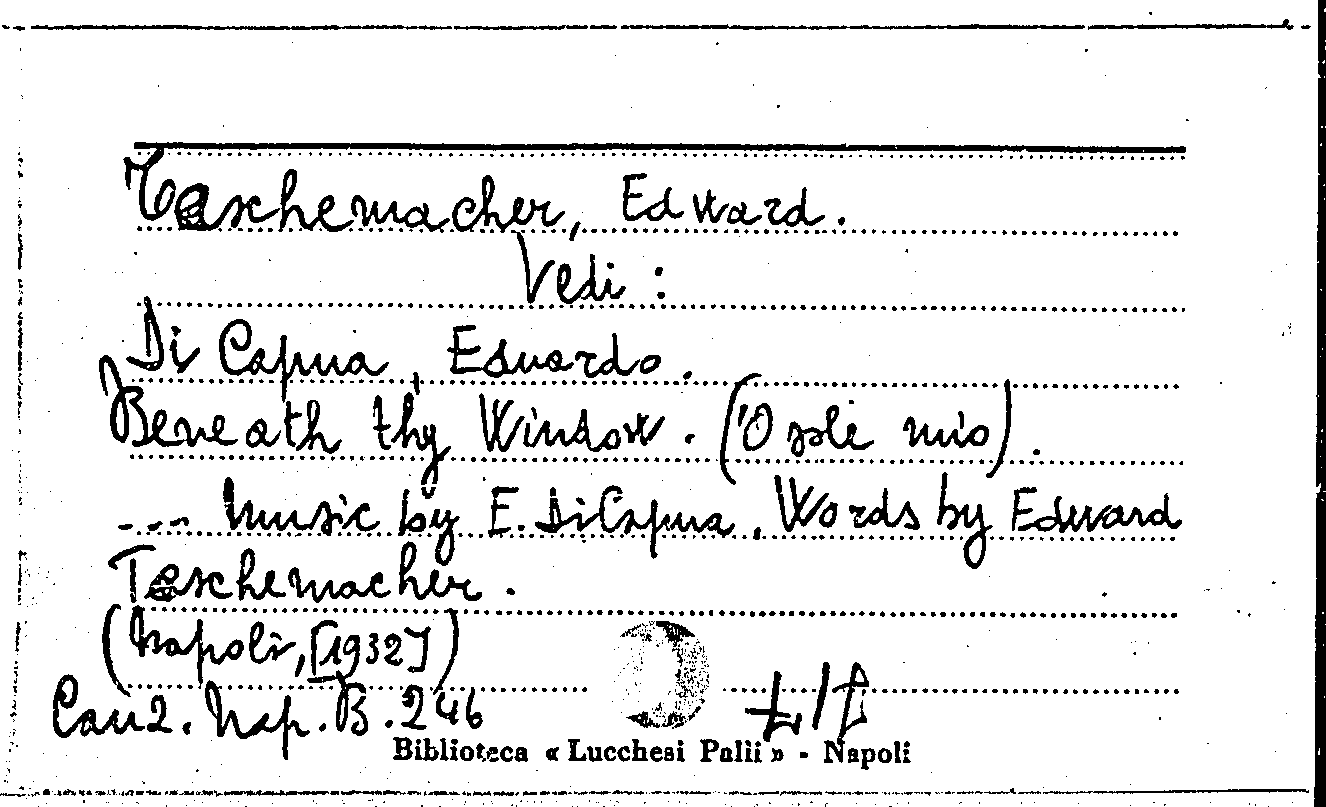 Taschemacher, Edward.
Vedi :
Di Capua, Eduardo.
Beneath thy Window. ('O sole mio).
--- Music by E. Di Capua. Words by Edward
Taschemacher.
(Napoli, [1932])
Canz. Nap. B. 246
Biblioteca « Lucchesi Palli » - Napoli